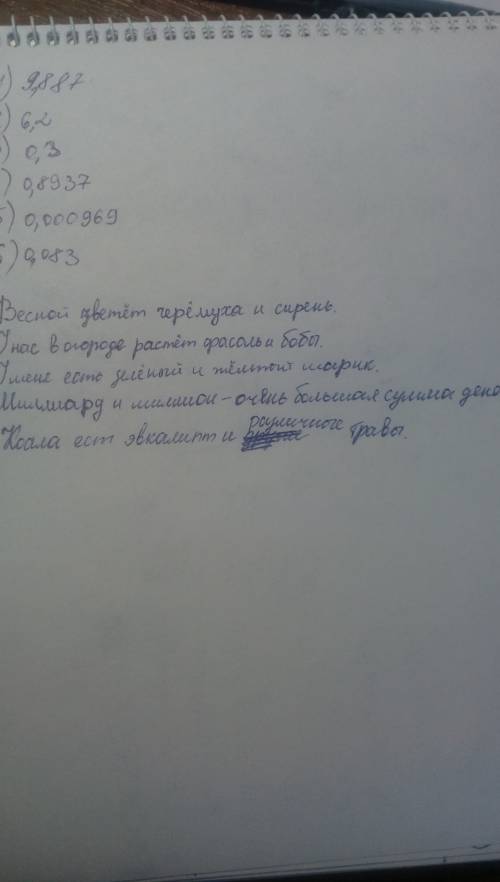 ) 9,887
) 6,2
) 0,3
) 0,8937
5) 0,000969
) 0,083
Весной цветёт черёмуха и сирень.
У нас в огороде растёт фасоль и бобы.
У меня есть зелёный и жёлтый шарик.
Миллиард и миллион - очень большая сумма дене
Коала ест эвкалипт и различные травы.